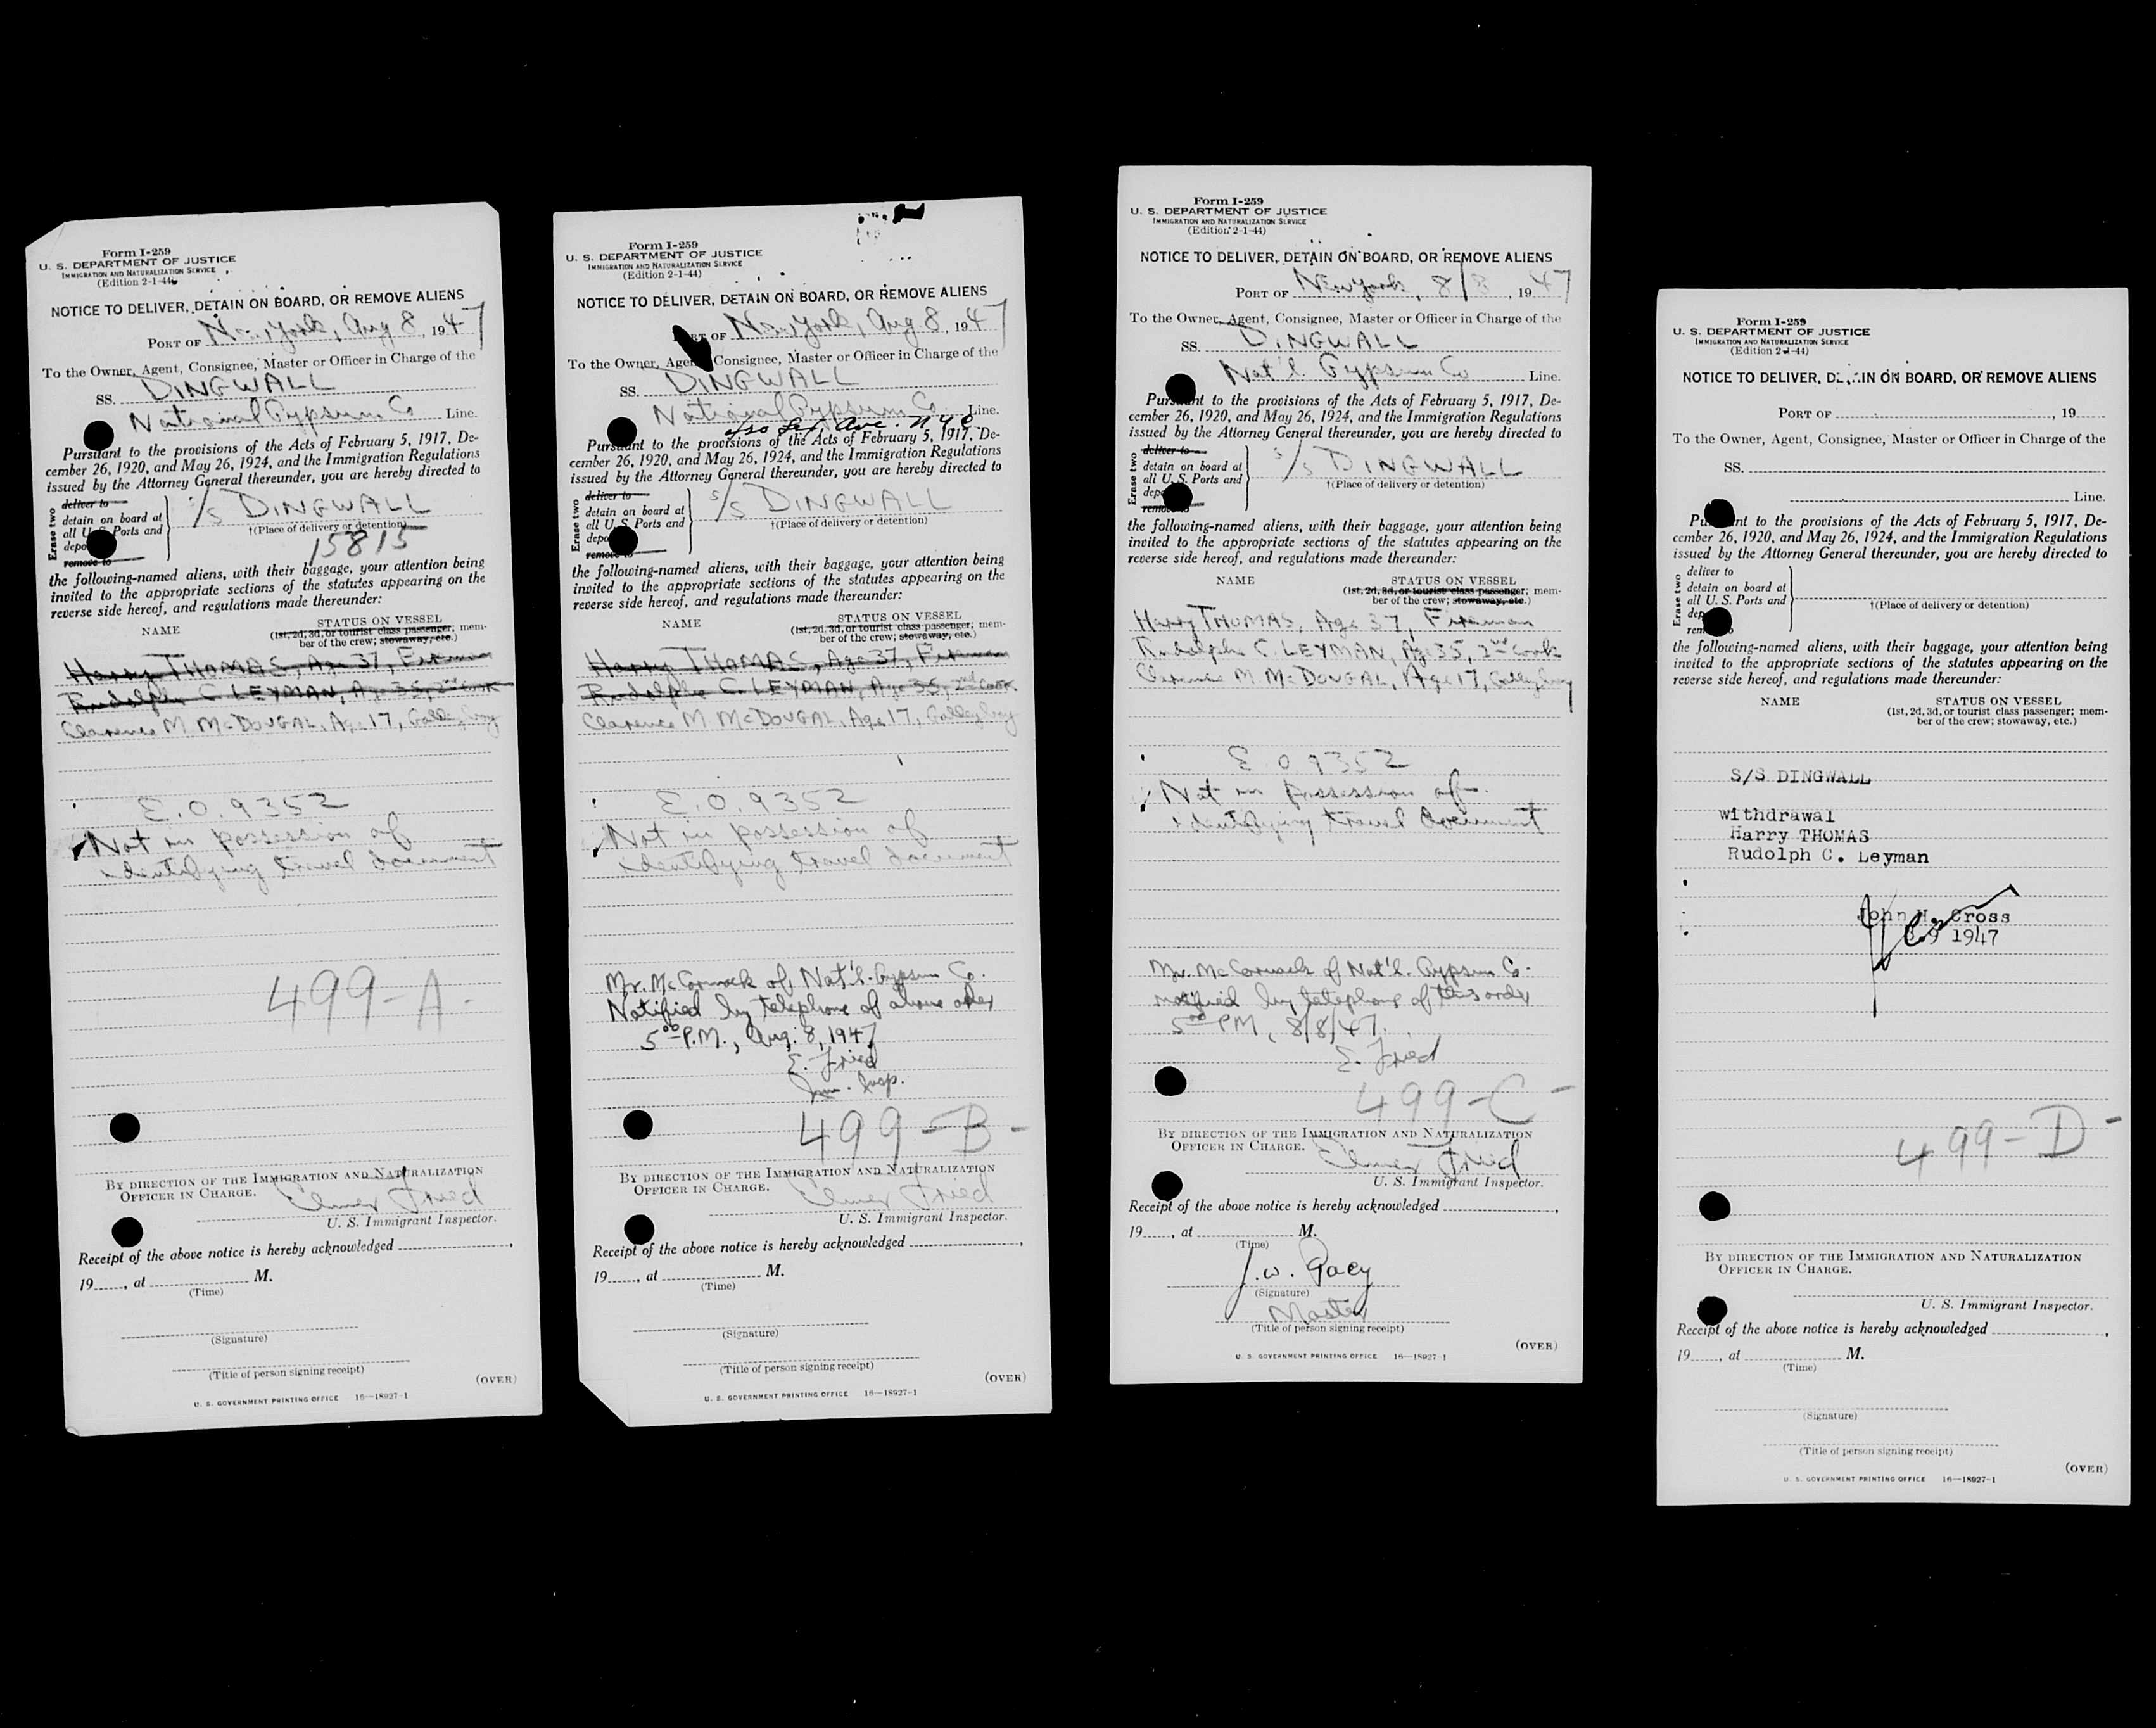 Form I-259
U. S. DEPARTMENT OF JUSTICE
IMMIGRATION AND NATURALIZATION SERVICE
(Edition 2-1-44)
NOTICE TO DELIVER, DETAIN ON BOARD, OR REMOVE ALIENS
PORT OF New York, Aug 8, 1947
To the Owner, Agent, Consignee, Master or Officer in Charge of the
SS. DINGWALL
National Gypsum Co Line.
Pursuant to the provisions of the Acts of February 5, 1917, De-
cember 26, 1920, and May 26, 1924, and the Immigration Regulations
issued by the Attorney General thereunder, you are hereby directed to
Erase two
deliver to
detain on board at
all U. S. Ports and
depo
remove to
S/S DINGWALL
†(Place of delivery or detention)
15815
the following-named aliens, with their baggage, your attention being
invited to the appropriate sections of the statutes appearing on the
reverse side hereof, and regulations made thereunder:
NAME STATUS ON VESSEL
(1st, 2d, 3d, or tourist class passenger; mem-
ber of the crew; stowaway, etc.)
Harry THOMAS, Age 37, Fireman
Rudolph C. LEYMAN, Age 35, 2nd Cook
Clarence M McDOUGAL, Age 17, Galley boy
E.O. 9352
Not in possession of
identifying travel document
499-A-
BY DIRECTION OF THE IMMIGRATION AND NATURALIZATION
OFFICER IN CHARGE.
Elmer Fried
U. S. Immigrant Inspector.
Receipt of the above notice is hereby acknowledged
19 , at M.
(Time)
(Signature)
(Title of person signing receipt)
(OVER)
U. S. GOVERNMENT PRINTING OFFICE 16—18927-1
Form I-259
U. S. DEPARTMENT OF JUSTICE
IMMIGRATION AND NATURALIZATION SERVICE
(Edition 2-1-44)
NOTICE TO DELIVER, DETAIN ON BOARD, OR REMOVE ALIENS
PORT OF New York, Aug 8, 1947
To the Owner, Agent, Consignee, Master or Officer in Charge of the
SS. DINGWALL
National Gypsum Co. Line.
Ave. N Y C
Pursuant to the provisions of the Acts of February 5, 1917, De-
cember 26, 1920, and May 26, 1924, and the Immigration Regulations
issued by the Attorney General thereunder, you are hereby directed to
Erase two
deliver to
detain on board at
all U. S. Ports and
depo
remove to
S/S DINGWALL
†(Place of delivery or detention)
the following-named aliens, with their baggage, your attention being
invited to the appropriate sections of the statutes appearing on the
reverse side hereof, and regulations made thereunder:
NAME STATUS ON VESSEL
(1st, 2d, 3d, or tourist class passenger; mem-
ber of the crew; stowaway, etc.)
Harry THOMAS, Age 37, Fireman
Rudolph C. LEYMAN, Age 35, 2nd Cook.
Clarence M McDOUGAL, Age 17, Galley boy
E.O. 9352
Not in possession of
identifying travel document
Mr. McCormack of Nat'l. Gypsum Co.
Notified by telephone of above order
5 00 P.M., Aug. 8, 1947
E. Fried
Imm. Insp.
499-B-
BY DIRECTION OF THE IMMIGRATION AND NATURALIZATION
OFFICER IN CHARGE.
Elmer Fried
U. S. Immigrant Inspector.
Receipt of the above notice is hereby acknowledged
19 , at M.
(Time)
(Signature)
(Title of person signing receipt)
(OVER)
U. S. GOVERNMENT PRINTING OFFICE 16—18927-1
Form I-259
U. S. DEPARTMENT OF JUSTICE
IMMIGRATION AND NATURALIZATION SERVICE
(Edition 2-1-44)
NOTICE TO DELIVER, DETAIN ON BOARD, OR REMOVE ALIENS
PORT OF New York, 8/8, 1947
To the Owner, Agent, Consignee, Master or Officer in Charge of the
SS. DINGWALL
Nat'l. Gypsum Co Line.
Pursuant to the provisions of the Acts of February 5, 1917, De-
cember 26, 1920, and May 26, 1924, and the Immigration Regulations
issued by the Attorney General thereunder, you are hereby directed to
Erase two
deliver to
detain on board at
all U. S. Ports and
depo
remove to
S/S DINGWALL
†(Place of delivery or detention)
the following-named aliens, with their baggage, your attention being
invited to the appropriate sections of the statutes appearing on the
reverse side hereof, and regulations made thereunder:
NAME STATUS ON VESSEL
(1st, 2d, 3d, or tourist class passenger; mem-
ber of the crew; stowaway, etc.)
Harry THOMAS, Age 37, Fireman
Rudolph C. LEYMAN, Age 35, 2nd Cook
Clarence M. McDOUGAL, Age 17, Galley boy
E.O 9352
Not in possession of
identifying travel document
Mr. McCormack of Nat'l. Gypsum Co.
notified by telephone of this order
5 00 PM, 8/8/47.
E. Fried
499-C-
BY DIRECTION OF THE IMMIGRATION AND NATURALIZATION
OFFICER IN CHARGE.
Elmer Fried
U. S. Immigrant Inspector.
Receipt of the above notice is hereby acknowledged
19 , at M.
(Time)
J. W. Pacy
(Signature)
Master
(Title of person signing receipt)
(OVER)
U. S. GOVERNMENT PRINTING OFFICE 16—18927-1
Form I-259
U. S. DEPARTMENT OF JUSTICE
IMMIGRATION AND NATURALIZATION SERVICE
(Edition 2-1-44)
NOTICE TO DELIVER, DETAIN ON BOARD, OR REMOVE ALIENS
PORT OF , 19
To the Owner, Agent, Consignee, Master or Officer in Charge of the
SS.
Line.
Pursuant to the provisions of the Acts of February 5, 1917, De-
cember 26, 1920, and May 26, 1924, and the Immigration Regulations
issued by the Attorney General thereunder, you are hereby directed to
Erase two
deliver to
detain on board at
all U. S. Ports and
dep
remove to
†(Place of delivery or detention)
the following-named aliens, with their baggage, your attention being
invited to the appropriate sections of the statutes appearing on the
reverse side hereof, and regulations made thereunder:
NAME STATUS ON VESSEL
(1st, 2d, 3d, or tourist class passenger; mem-
ber of the crew; stowaway, etc.)
S/S DINGWALL
withdrawal
Harry THOMAS
Rudolph C. Leyman
John H. Cross
8.9 1947
499-D-
BY DIRECTION OF THE IMMIGRATION AND NATURALIZATION
OFFICER IN CHARGE.
U. S. Immigrant Inspector.
Receipt of the above notice is hereby acknowledged
19 , at M.
(Time)
(Signature)
(Title of person signing receipt)
(OVER)
U. S. GOVERNMENT PRINTING OFFICE 16—18927-1